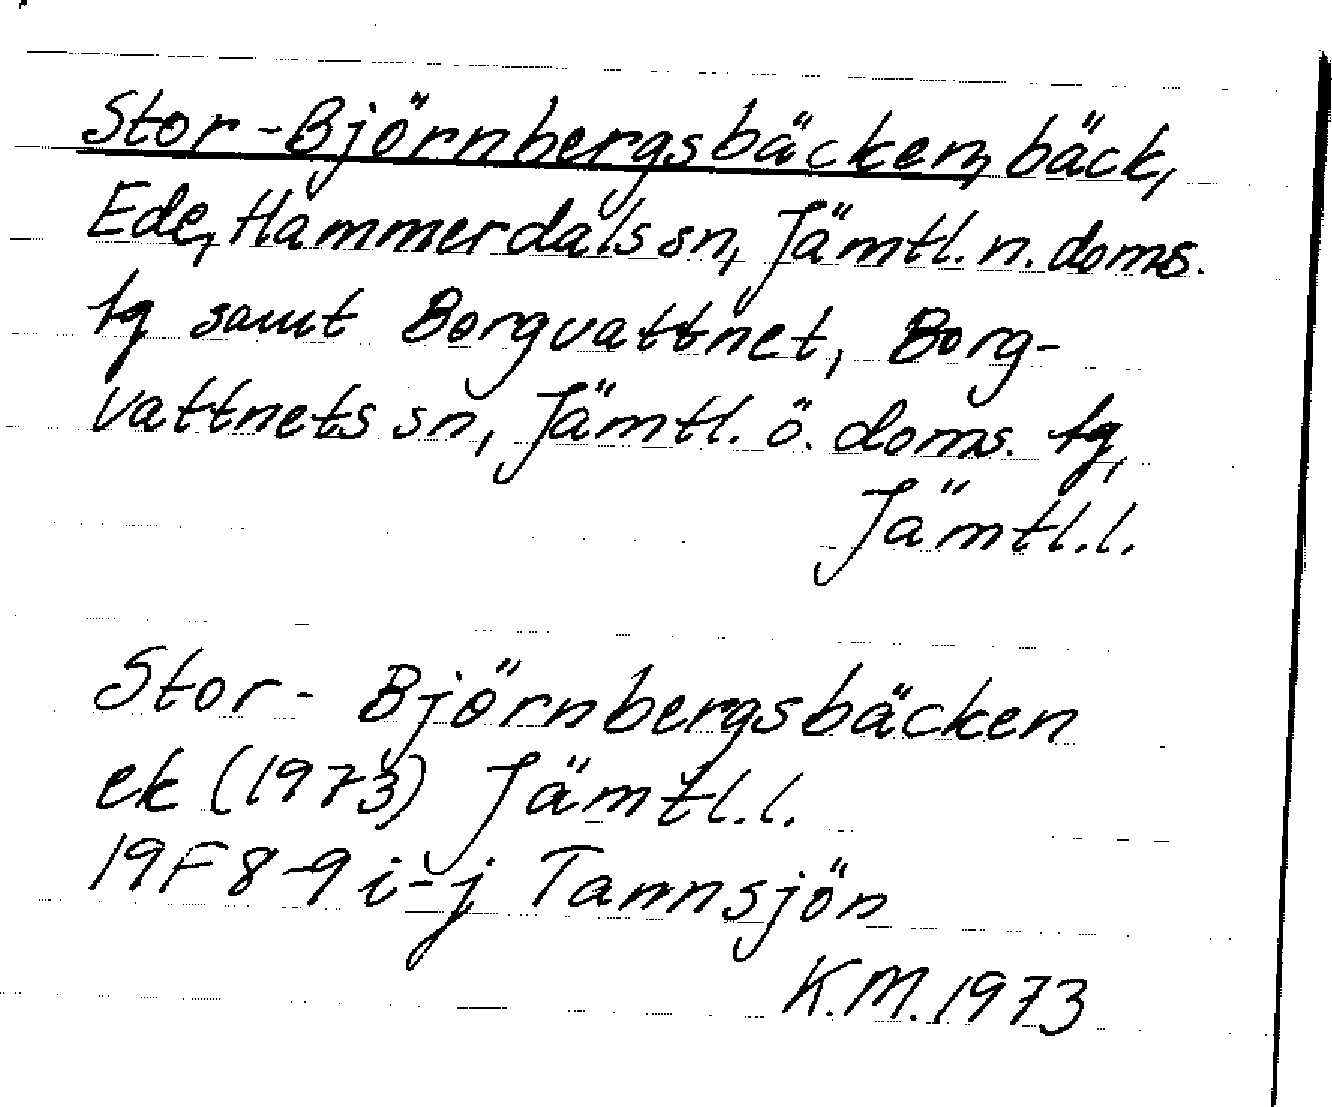 Stor-Björnbergsbäcken, bäck,
Ede, Hammerdals sn, Jämtl. n. doms.
tg samt Borgvattnet, Borg-
vattnets sn, Jämtl. ö. doms. tg,
Jämtl. l.
Stor-Björnbergsbäcken
ek (1973) Jämtl. l.
19F 8-9 i-j Tannsjön
K.M. 1973